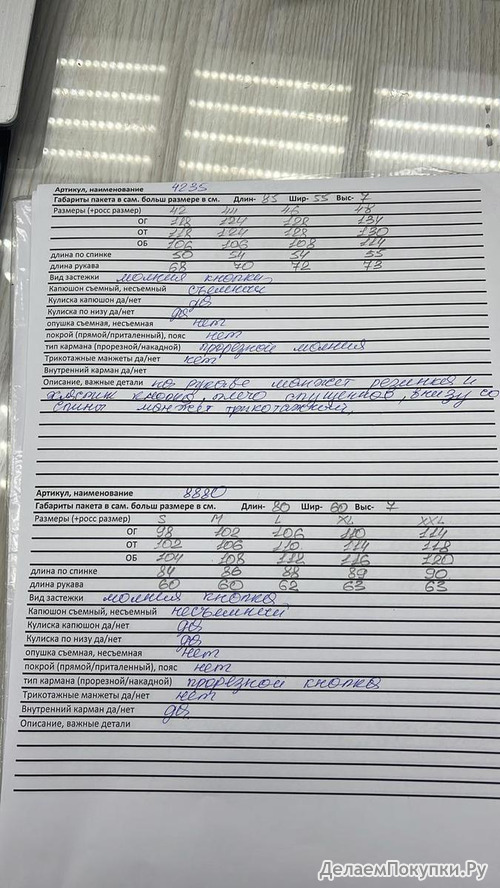 Артикул, наименование 4235
Габариты пакета в сам. больш размере в см. Длин- 85 Шир- 55 Выс- 7
Размеры (+росс размер) 42 44 46 48
ОГ 118 124 128 134
ОТ 118 124 128 130
ОБ 106 106 108 114
длина по спинке 50 54 54 55
длина рукава 68 70 72 73
Вид застежки молния кнопки
Капюшон съемный, несъемный съемный
Кулиска капюшон да/нет да
Кулиска по низу да/нет да
опушка съемная, несъемная нет
покрой (прямой/приталенный), пояс нет
тип кармана (прорезной/накадной) прорезной молния
Трикотажные манжеты да/нет нет
Внутренний карман да/нет
Описание, важные детали на рукаве манжет резинка и
хлястик кнопка, плечо спущенное, внизу со
спины манжет трикотажный,
Артикул, наименование 8880
Габариты пакета в сам. больш размере в см. Длин- 80 Шир- 60 Выс- 7
Размеры (+росс размер) S M L XL XXL
ОГ 98 102 106 110 114
ОТ 102 106 110 114 118
ОБ 104 108 112 116 120
длина по спинке 84 86 88 89 90
длина рукава 60 60 62 63 63
Вид застежки молния кнопка
Капюшон съемный, несъемный несъемный
Кулиска капюшон да/нет да
Кулиска по низу да/нет да
опушка съемная, несъемная нет
покрой (прямой/приталенный), пояс нет
тип кармана (прорезной/накадной) прорезной кнопка
Трикотажные манжеты да/нет нет
Внутренний карман да/нет да
Описание, важные детали
ДелаемПокупки.Ру